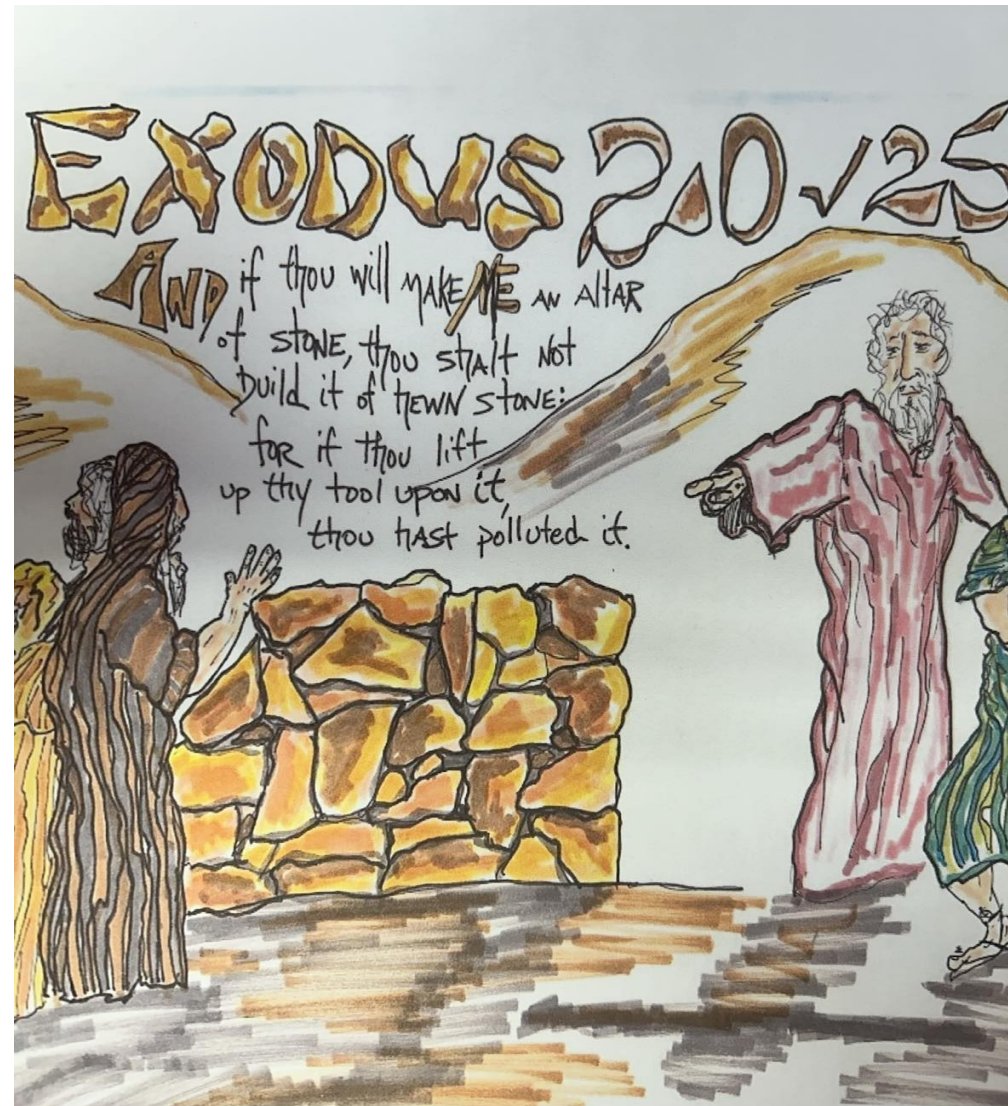 EXODUS 20 √25
AND if thou will MAKE ME AN AltAR
of STONE, thou shalt Not
build it of hEWN STONE:
foR if thou lift
up thy tool upon it,
thou hASt polluted it.